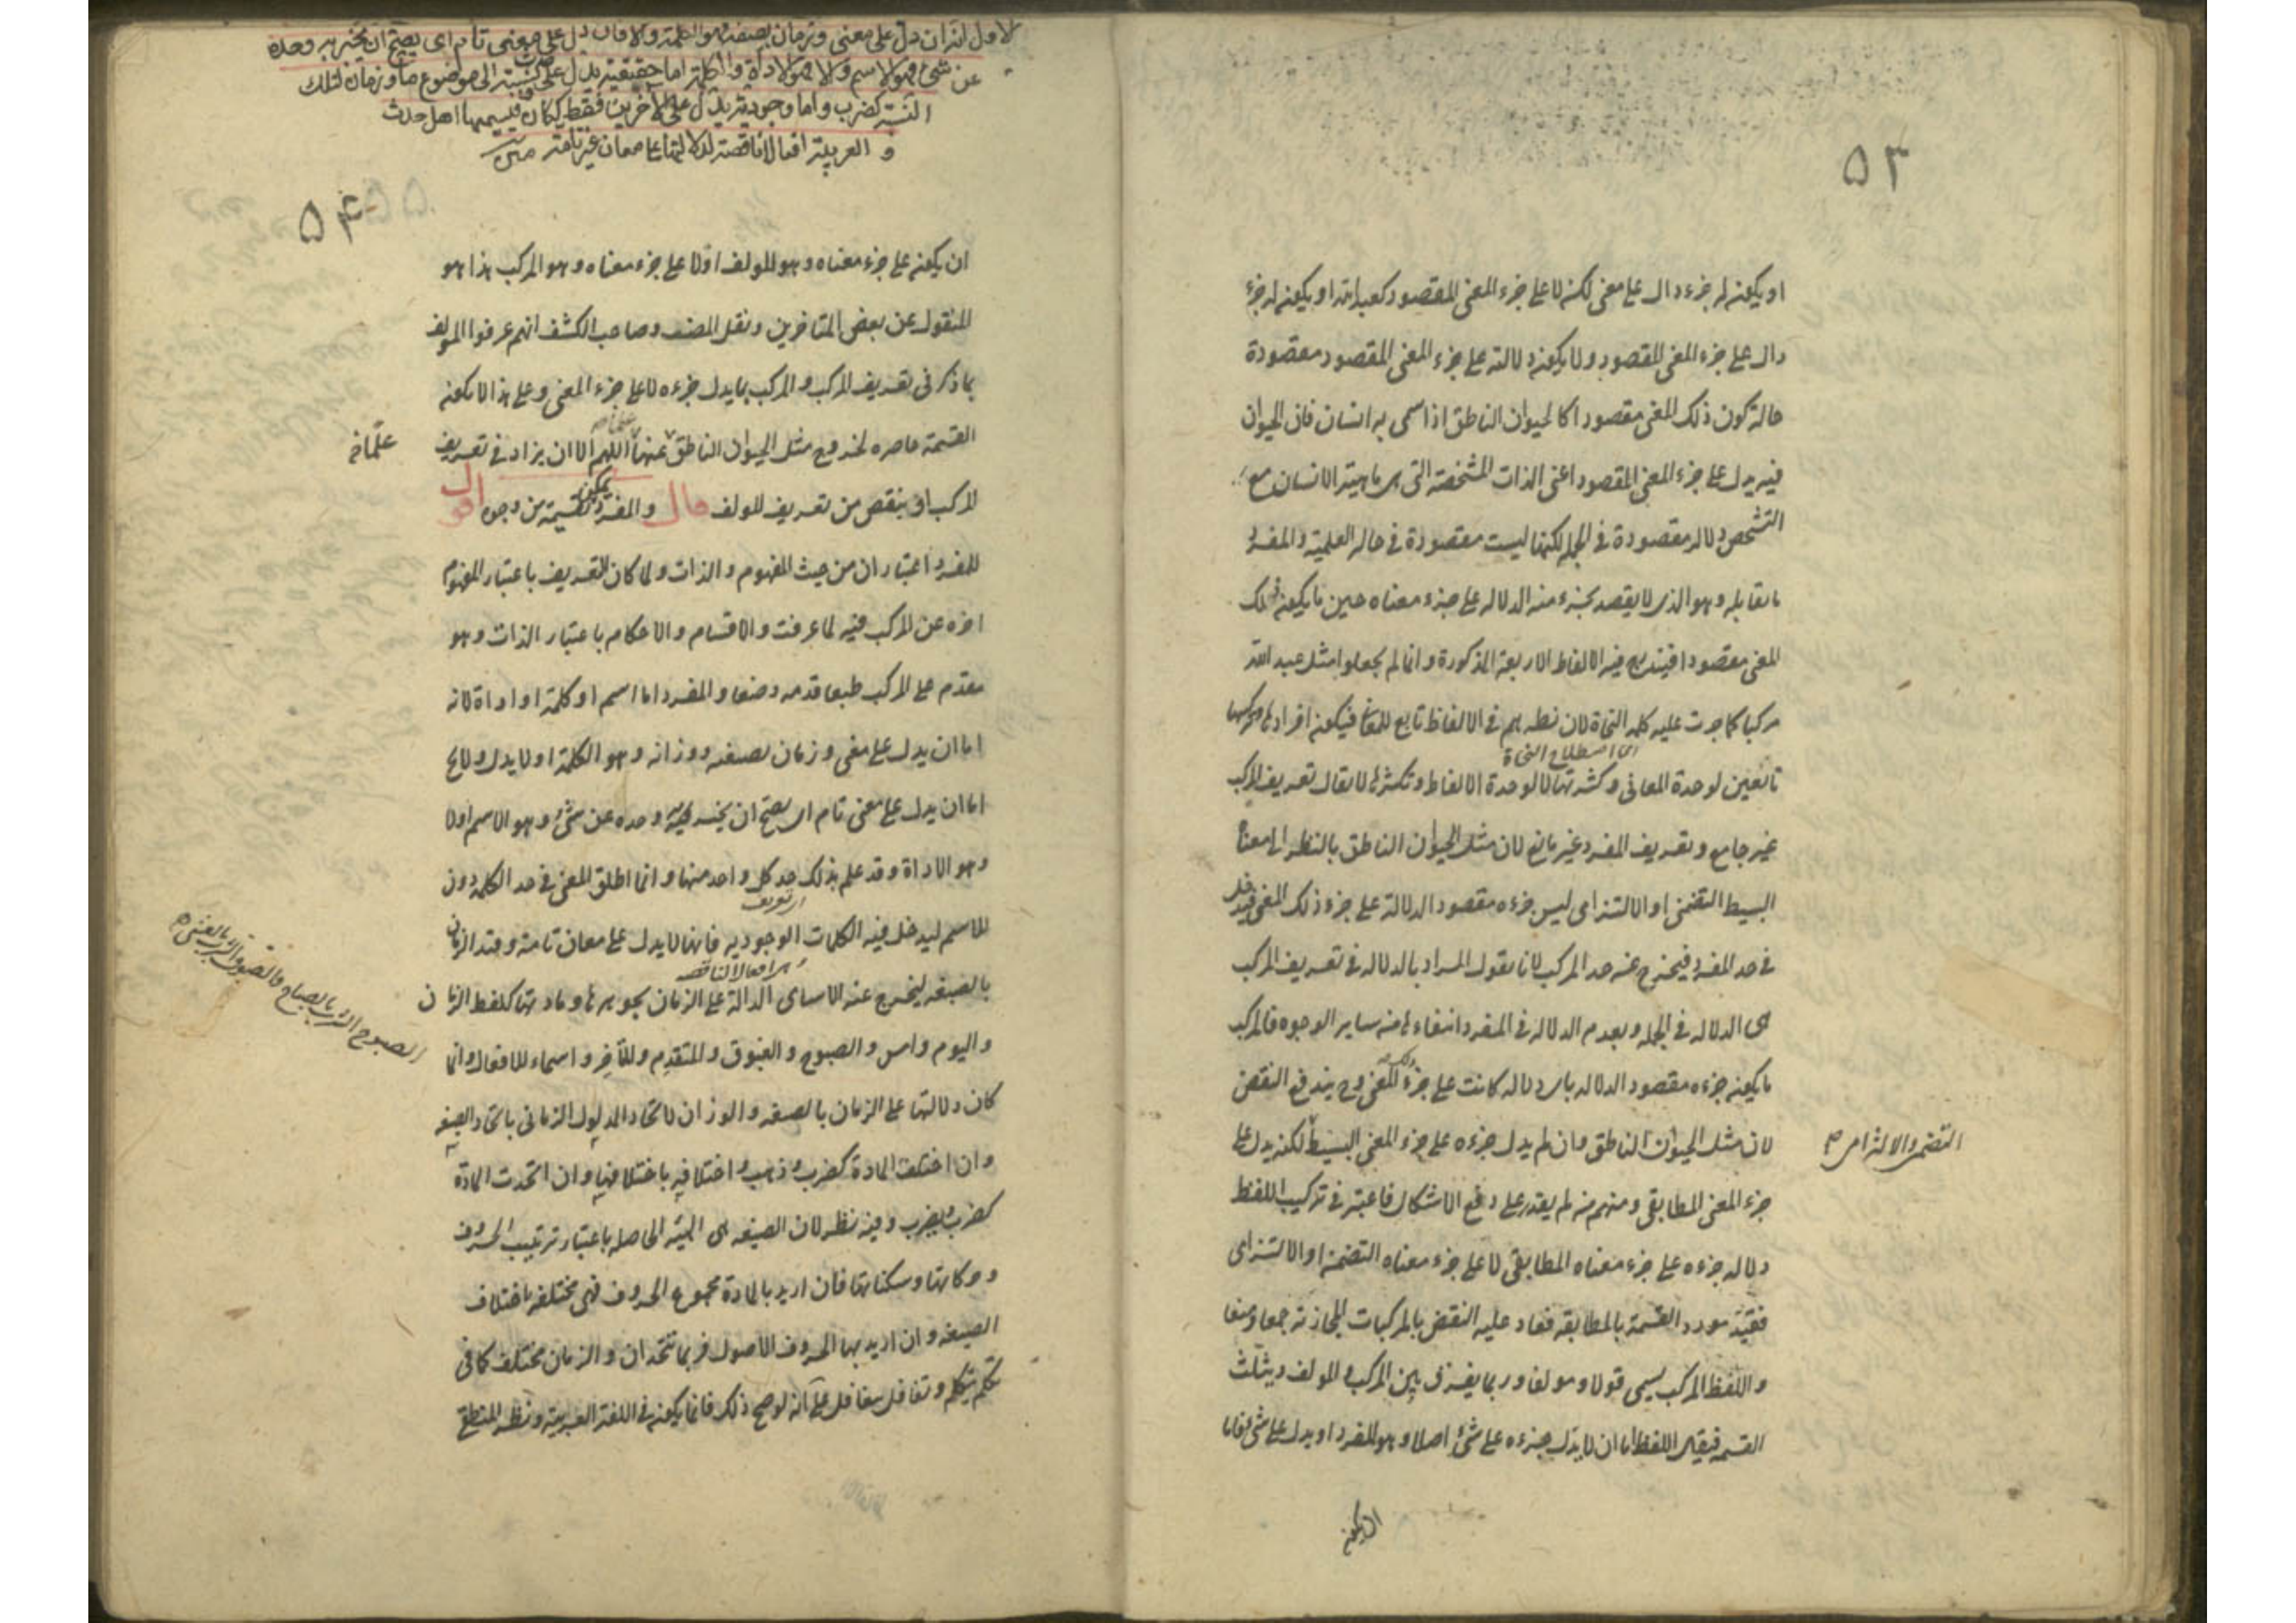 ٥٣
او يكون له جزء دال على معنى لكنه لا على جزء المعنى المقصود كعبد الله او يكون له جزء
دال على جزء المعنى المقصود ولا يكون دلالته على جزء المعنى المقصود مقصودة
حالة كون ذلك المعنى مقصودا كالحيوان الناطق اذا سمى به انسان فان الحيوان
فيه يدل على جزء المعنى المقصود اعنى الذات المشخصة التى هى ماهية الانسان مع
التشخص دلاله مقصودة فى الجمله لكنها ليست مقصودة فى حاله العلمية والمفرد
ما يقابله وهو الذى لا يقصد بجزء منه الدلاله على جزء معناه حين ما يكون ذلك
المعنى مقصودا فيندرج فيه الالفاظ الاربعة المذكورة وانما لم يجعلوا مثل عبد الله
مركبا كما جرت عليه كلمه النحاة لان نظرهم فى الالفاظ تابع للمعانى فيكون افرادها وتركيبها
اى اصطلاح النحاة
تابعين لوحدة المعانى وكثرتها لا لوحدة الالفاظ وتكثرها لا يقال تعريف المركب
غير جامع وتعريف المفرد غير مانع لان مثل الحيوان الناطق بالنظر الى معناه
البسيط التضمنى او الالتزامى ليس جزءه مقصود الدلالة على جزء ذلك المعنى فيدخل
فى حد المفرد فيخرج عنه حد المركب لانا نقول المراد بالدلاله فى تعريف المركب
هى الدلاله فى الجمله وبعدم الدلاله فى المفرد انتفاءها من ساير الوجوه فالمركب
ما يكون جزءه مقصود الدلاله باى دلاله كانت على جزء ذلك المعنى وح يندفع النقض
لان مثل الحيوان الناطق وان لم يدل جزءه على جزء المعنى البسيط لكنه يدل على
التضمنى والالتزامى
جزء المعنى المطابقى ومنهم من لم يقدر على دفع الاشكال فاعتبر فى تركيب اللفظ
دلاله جزءه على جزء معناه المطابقى لا على جزء معناه التضمنى او الالتزامى
فقيد مورد القسمة بالمطابقه فعاد عليه النقض بالمركبات المجازية جمعا ومنعا
واللفظ المركب يسمى قولا ومولفا وربما يفرق بين المركب والمولف ويثلث
القسمه فيقال اللفظ اما ان لا يدل جزءه على شئ اصلا وهو المفرد او يدل على شئ فاما
ان يكون
لاول لانه ان دل على معنى وزمان بصيغته فهو الكلمة والا فان دل على معنى تام اى يصح ان يخبر به وحده
عن شئ فهو الاسم والا فهو الاداة والكلمة اما حقيقية يدل على حدث ونسبته الى موضوع ما وزمان لتلك
النسبة كضرب واما وجودية يدل على الاخرين فقط ككان ويسميها اهل
العربية افعالا ناقصة لدلالتها على معان غير تامة متن
٥٤
ان يكون على جزء معناه وهو المولف او لا على جزء معناه وهو المركب هذا هو
المنقول عن بعض المتاخرين ونقل المصنف وصاحب الكشف انهم عرفوا المولف
بما ذكر فى تعريف المركب والمركب بما يدل جزءه لا على جزء المعنى وعلى هذا لا يكون
القسمة حاصره لخروج مثل الحيوان الناطق علما عنها اللهم الا ان يزاد فى تعريف
المركب او ينقص من تعريف المولف قال والمفرد يمكن تقسيمه من وجوه اقول
للمفرد اعتباران من حيث المفهوم والذات ولما كان التعريف باعتبار المفهوم
اخره عن المركب فيه لما عرفت والاقسام والاحكام باعتبار الذات وهو
مقدم على المركب طبعا قدمه وضعا والمفرد اما اسم او كلمة او اداة لانه
اما ان يدل على معنى وزمان بصيغته ووزانه وهو الكلمة او لا يدل ولا يخ
اما ان يدل على معنى تام اى يصح ان يخبر به وحده عن شئ وهو الاسم او لا
وهو الاداة وقد علم بذلك حد كل واحد منها وانما اطلق المعنى فى حد الكلمه دون
اى تعريف
الاسم ليدخل فيه الكلمات الوجوديه فانها لا يدل على معان تامة وقيد الزمان
اى افعال الناقصه
بالصيغه ليخرج عنه الاسماء الدالة على الزمان بجوهرها ومادتها كلفظ الزمان
واليوم وامس والصبوح والغبوق والمتقدم والمتاخر واسماء الافعال وانما
كان دلالتها على الزمان بالصيغه والوزان لاتحاد المدلول الزمانى باتحاد الصيغه
وان اختلفت المادة كضرب وذهب واختلافه باختلافها وان اتحدت المادة
كضرب ويضرب وفيه نظر لان الصيغه هى الهيئة الحاصله باعتبار ترتيب الحروف
وحركاتها وسكناتها فان اريد بالمادة مجموع الحروف فهى مختلفه باختلاف
الصيغه وان اريد بها الحروف الاصول فربما تتحدان والزمان مختلف كما فى
تكلم يتكلم وتغافل يتغافل على انه لو صح ذلك فانما يكون فى اللغة العربية ونظر المنطق
علما خ
الصبوح الشرب بالصباح والغبوق الشرب بالعشى